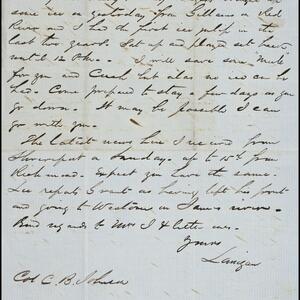 some ice on yesterday from Gillams on Red
River and I had the first ice julep in the
last two years. Sat up and played set back
until 12 Oclk. I will save some Mint
for you and Cush but alas no ice can be
had. Come prepared to stay a few days as you
go down. It may be possible I can
go with you.
The latest news here I received from
Shreveport on Sunday. up to 15th from
Richmond. Expect you have the same.
Lee reports Grant as having left his front
and going to Westover on James river.
Kind regards to Mrs J & little ones.
Yours
Langan
Col C. B. Johnson